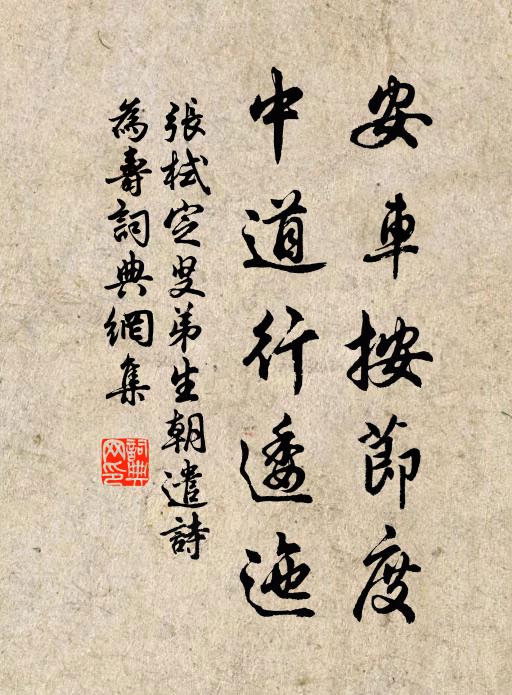 安車按節度
中道行逶迤
張栻定叟弟生朝遣詩
為壽詞典網集
詞典网印